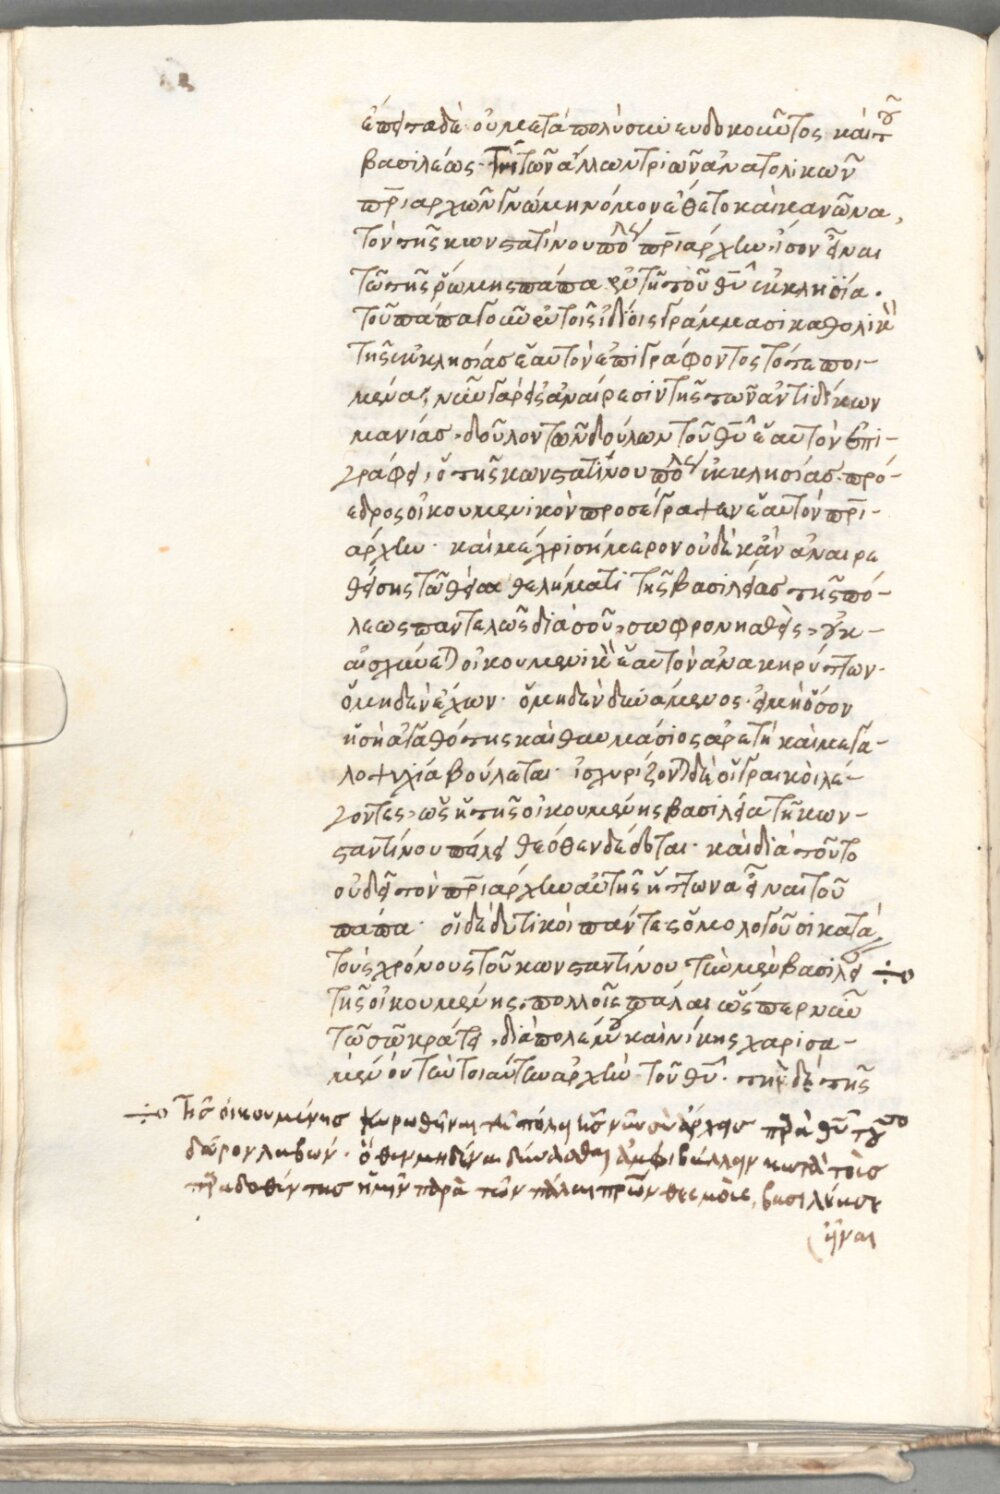 ἔπειτα δὲ οὐ μετὰ πολὺ συνευδοκοῦντος καὶ τοῦ
βασιλέως τῇ τῶν ἄλλων τριῶν ἀνατολικῶν
πριαρχῶν γνώμῃ νόμον ἔθετο καὶ κανῶνα,
τὸν τῆς κωνσταντίνου πό πριάρχην ἴσον εἶναι
τῶ τῆς ῥώμης πάπα ἐν τῇ τοῦ θυ ἐκκλησία.
τοῦ πάπα γοῦν ἐν τοῖς ἰδίοις γράμμασι καθολικῆς
τῆς ἐκκλησίας ἑαυτὸν ἐπιγράφοντος τότε ποι-
μένα, νῦν γὰρ εἰς ἀναίρεσιν τῆς τῶν ἀντιδίκων
μανίας, δοῦλον τῶν δούλων τοῦ θυ ἑαυτὸν ἐπι-
γράφει, ὁ τῆς κωνσταντίνου πό ἐκκλησίας πρό-
εδρος οἰκουμενικὸν προσέγραψεν ἑαυτὸν πρι-
άρχην. καὶ μέχρι σήμερον οὐδὲ κἂν ἀναιρε
θείσης τῶ θείω θελήματι τῆς βασιλείας τῆς πό-
λεως παντελῶς διὰ σοῦ, σωφρονηθεὶς, οὐκ
αἰσχύνεται οἰκουμενικὸν ἑαυτὸν ἀνακηρύττων.
ὁ μηδὲν ἔχων. ὁ μηδὲν δυνάμενος. εἰ μὴ ὅσον
ἡ σὴ ἀγαθότης καὶ θαυμάσιος ἀρετὴ καὶ μεγα-
λοψυχία βούλεται. ἰσχυρίζονται δὲ οἱ γραικοὶ λέ-
γοντες, ὡς ἡ τῆς οἰκουμένης βασιλεία τῇ κων-
σταντίνου πόλει θεόθεν δέδοται. καὶ διὰ τοῦτο
οὐδεὶς τὸν πριάρχην αὐτῆς ἥττωνα εἶναι τοῦ
πάπα. οἱ δὲ δυτικοὶ πάντες ὁμολογοῦσι κατὰ
τοὺς χρόνους τοῦ κωνσταντίνου τὴν μὲν βασιλεί ÷
τῆς οἰκουμένης, πολλοῖς πάλαι ὥσπερ νῦν
τῶ σῶ κράτει, διὰ πολέμου καὶ νίκης χαρισα-
μένον τὴν τοιαύτην ἀρχὴν τοῦ θυ. τὴν δὲ τῆς
÷ τῆς οἰκουμένης κυρωθῆναι τῇ πόλει ἧς νῦν σὺ ἄρχεις παρὰ θυ τὸ
δῶρον λαβών. ὅθεν μηδένα δύνασθαι ἀμφιβάλλειν κατὰ τοὺς
παραδοθέντας ἡμῖν παρὰ τῶν πάλαι πρων θεσμοὺς, βασιλέα σε
εἶναι